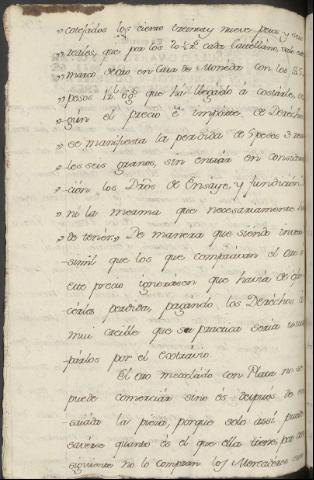 "cotejados los ciento treinta y nueve pesos y seis
"reales, que por los 20 qts. cada Castellano, vale este
"marco de oro en Casa de Moneda con los 145
"pesos 1 r. 6 gs. que ha llegado à costarle, se
"gun el precio è importe de Derechos
"se manifiesta la perdida de 5 pesos 3 rea
"les seis granos, sin entrar en considera
"cion los Dros. de Ensaye, y fundicion
"ni la mesma que necesariamente ha
"de tener, De manera que siendo invero
-simil que los que compraban el Oro à
este precio ignorasen que havia de oca
cionar perdida, pagando los Derechos es
mui creible que su practica seria usur
-parlos por el extravio.
El oro mezclado con Plata no se
puede comerciar sino es despues de en
sayada la pieza, porque solo asi puede
saverse quanto es el que ella tiene, por con
siguiente no lo compran los Mercaderes